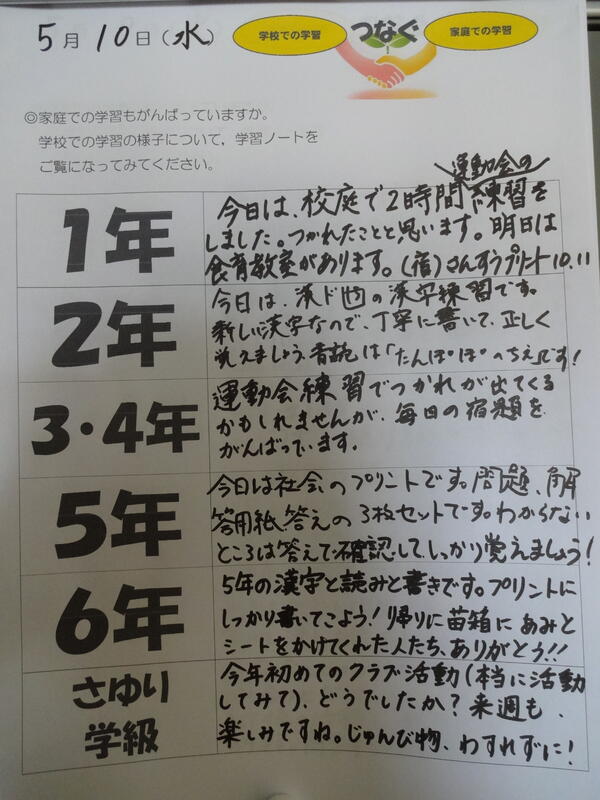 5月10日(水)
学校での学習
つなぐ
家庭での学習
◎家庭での学習もがんばっていますか。
学校での学習の様子について，学習ノートを
ご覧になってみてください。
1年
運動会の
今日は、校庭で2時間練習を
しました。つかれたことと思います。明日は
食育教室があります。(宿)さんすうプリント10.11
2年
今日は、漢ド⑭の漢字練習です。
新しい漢字なので、丁寧に書いて、正しく
覚えましょう。音読は「たんぽぽ"のちえ」です!
3・4年
運動会練習でつかれが出てくる
かもしれませんが、毎日の宿題を
がんばっています。
5年
今日は社会のプリントです。問題、解
答用紙、答えの3枚セットです。わからない
ところは答えで確認して、しっかり覚えましょう!
6年
5年の漢字と読みと書きです。プリントに
しっかり書いてこよう!帰りに苗箱にあみと
シートをかけてくれた人たち、ありがとう!!
さゆり
学級
今年初めてのクラブ活動(本当に活動
してみて)、どうでしたか?来週も、
楽しみですね。じゅんび物、わすれずに!